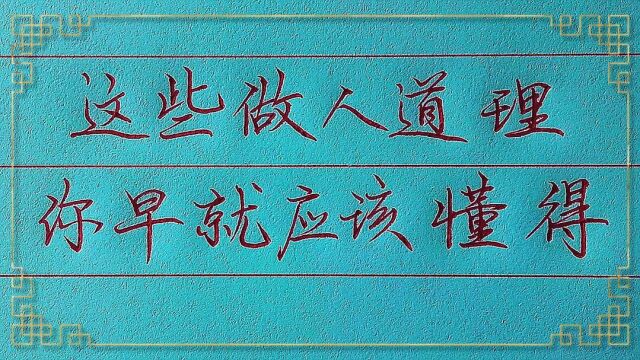 这些做人道理
你早就应该懂得